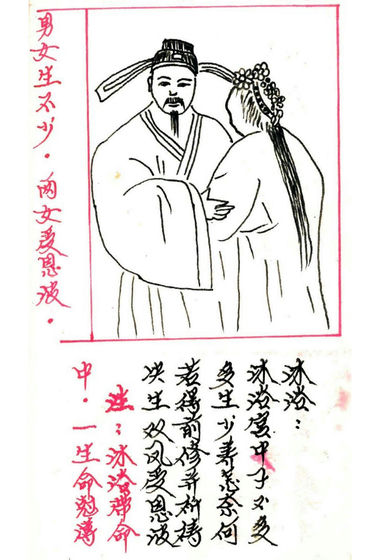 男女生不少。两女受恩波。
沐浴：
沐浴宫中子不多
多生少寿怎奈何
若得前修并祈祷
决生双凤受恩波
注：沐浴命
中。一生命薄